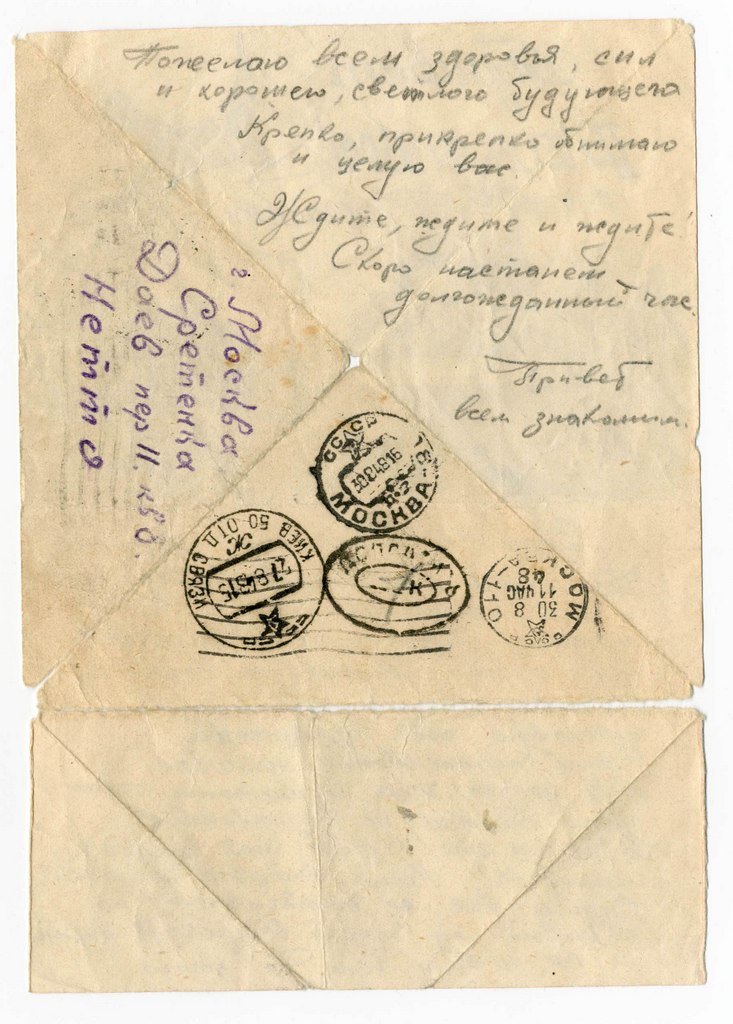 Пожелаю всем здоровья, сил
и хорошего, светлого будующего
Крепко, прикрепко обнимаю
и целую вас.
Ждите, ждите и ждите!
Скоро настанет
долгожданный час.
Привет
всем знакомим.
г. Москва
Сретенка
Даев пер 11. кв 6.
Нетто
СССР
30 8 48 16
МОСКВА
КИЕВ 50 ОТД СВЯЗИ
27 8 48 15
СССР
ДОПЛАТИТЬ
МОСКВА-110
30 8
11 ЧАС
48
СССР